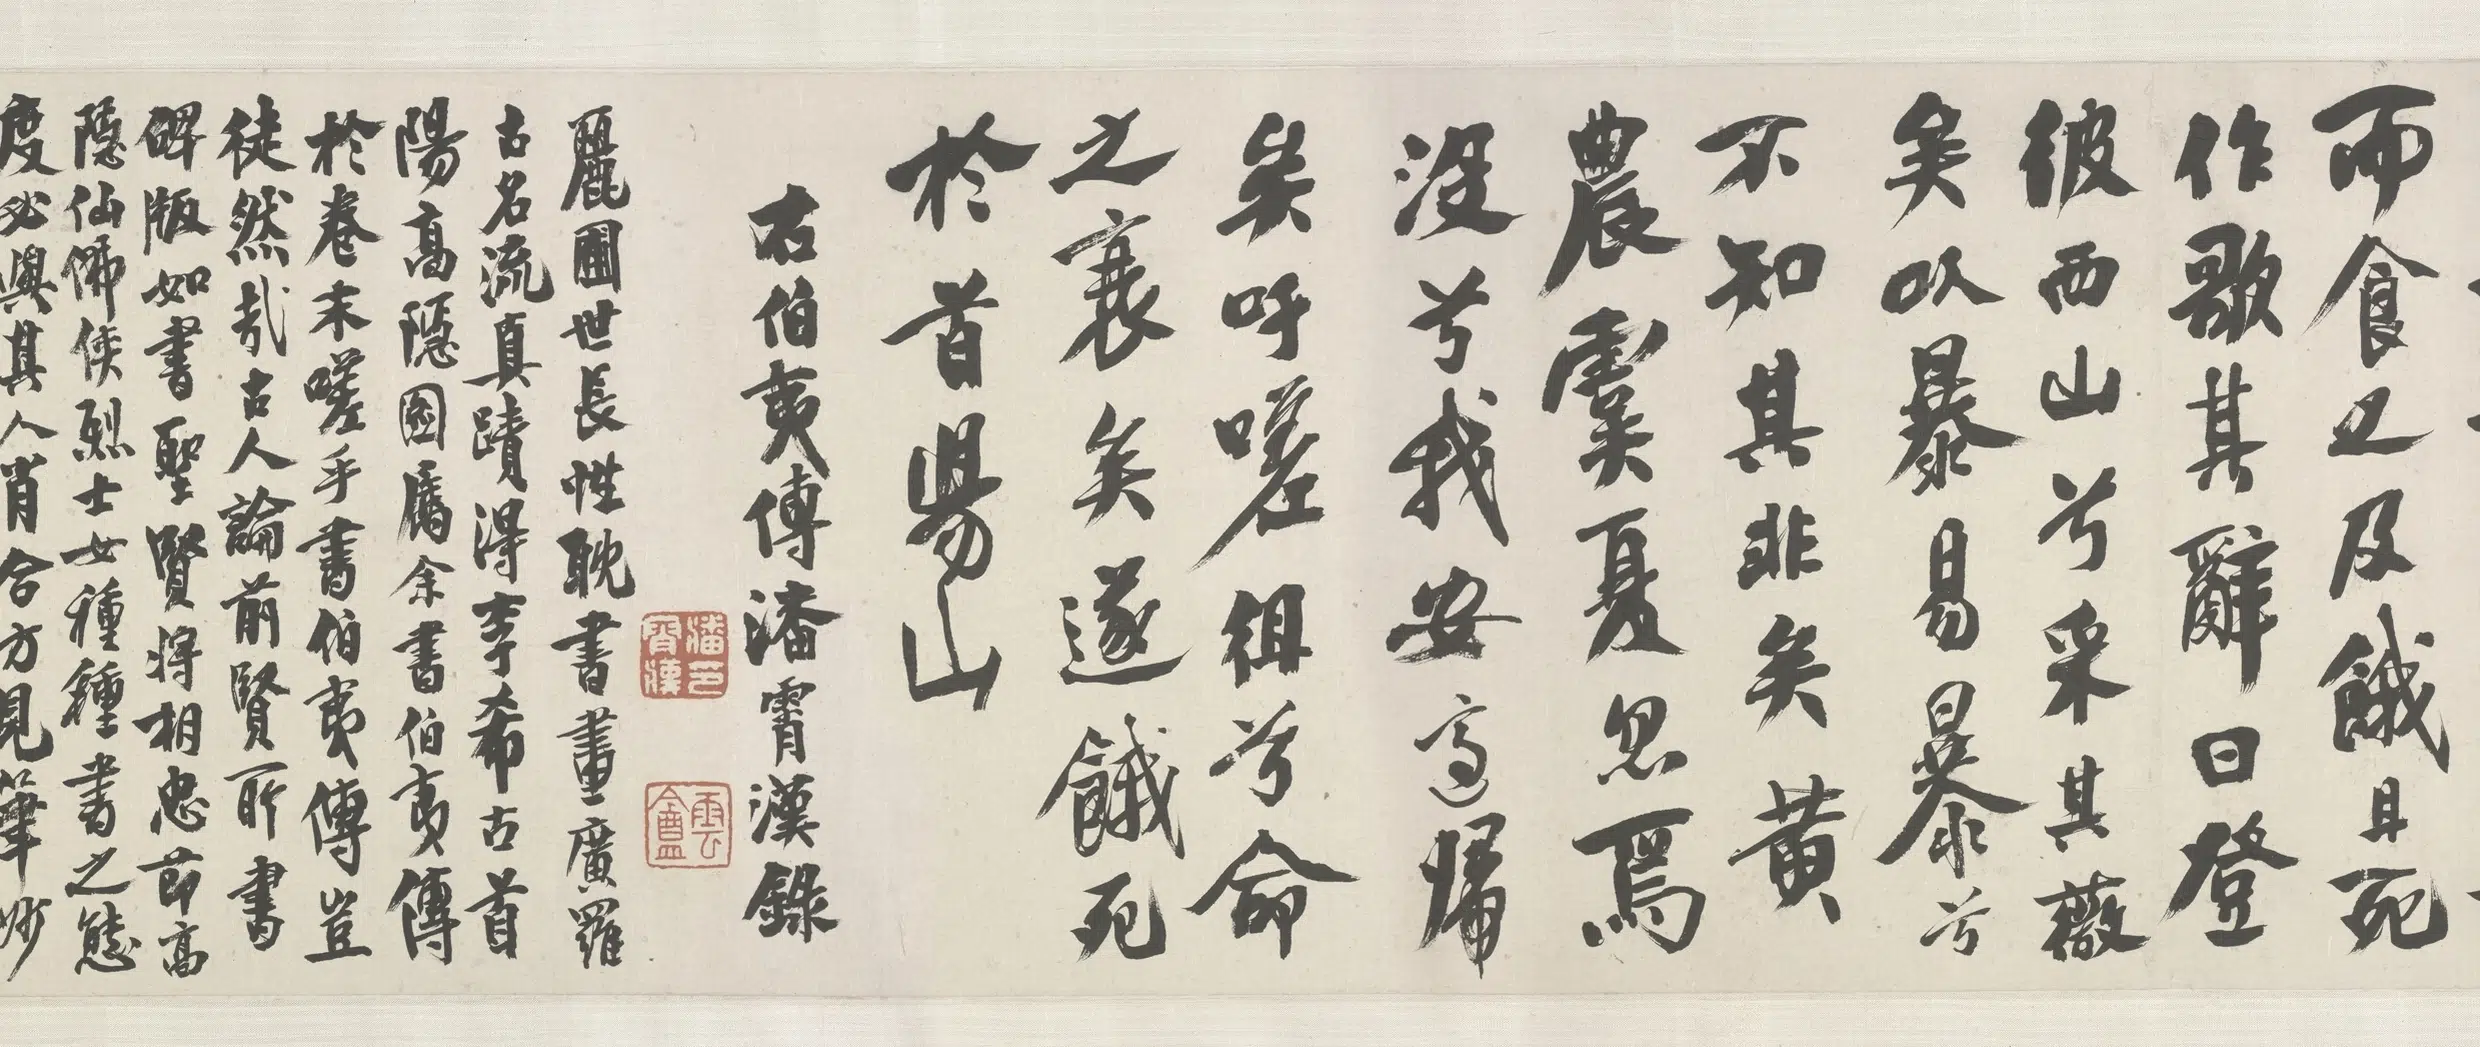 而食之及餓且死
作歌其辭曰登
彼西山兮采其薇
矣以暴易暴兮
不知其非矣黄
農虞夏忽焉
沒兮我安適歸
矣呼嗟徂兮命
之衰矣遂餓死
於首昜山
右伯夷傳潘霄漢錄
潘霄漢印
雲盦
麗圃世長性耽書畫廣羅
古名流真蹟得李希古首
陽高隱圖屬余書伯夷傳
於卷末嗟乎書伯夷傳豈
徒然哉古人論前賢所書
碑版如書聖賢將相忠節高
隱仙佛俠烈士女種種書之態
度必與其人肖合方見筆妙